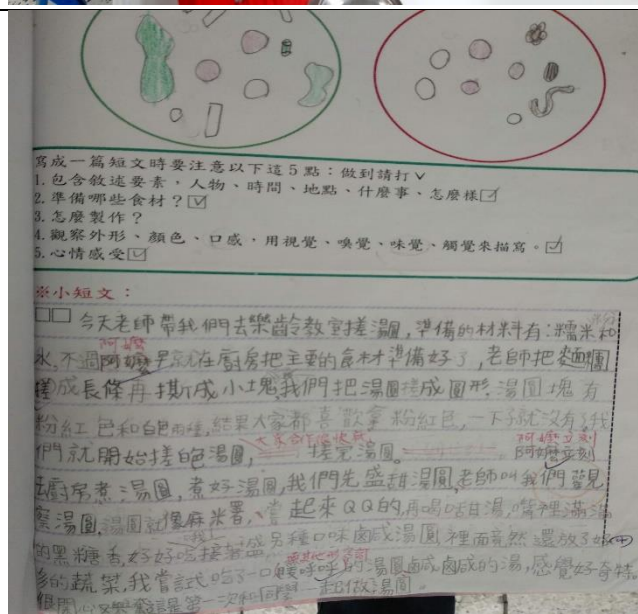 寫成一篇短文時要注意以下這5點：做到請打✓
1.包含敘述要素，人物、時間、地點、什麼事、怎麼樣☑
2.準備哪些食材？☑
3.怎麼製作？
4.觀察外形、顏色、口感，用視覺、嗅覺、味覺、觸覺來描寫。☑
5.心情感受☑
※小短文：
□□今天老師帶我們去樂齡教室搓湯圓，準備的材料有：糯米和
阿嬤
水，不過阿嬤早就在廚房把主要的食材準備好了，老師把
搓成長條再撕成小塊，我們把湯圓搓成圓形，湯圓塊有
粉紅色和白色兩種，結果大家都喜歡拿粉紅色，一下子就沒有了，我
們就開始搓白色湯圓，搓完湯圓。
阿嬤立刻
阿嬤立刻
去廚房煮湯圓，煮好湯圓，我們先盛甜湯圓，老師叫我們
察湯圓，湯圓就像麻米署，嘗起來QQ的，再喝口甜湯，嘴裡滿滿
的黑糖香，好好吃接著 另種口味鹹湯圓，裡面竟然還放了好
多的蔬菜，我嘗試吃了一口 的湯圓 鹹的湯，感覺好奇特
很開心 第一次和同學一起做湯圓。